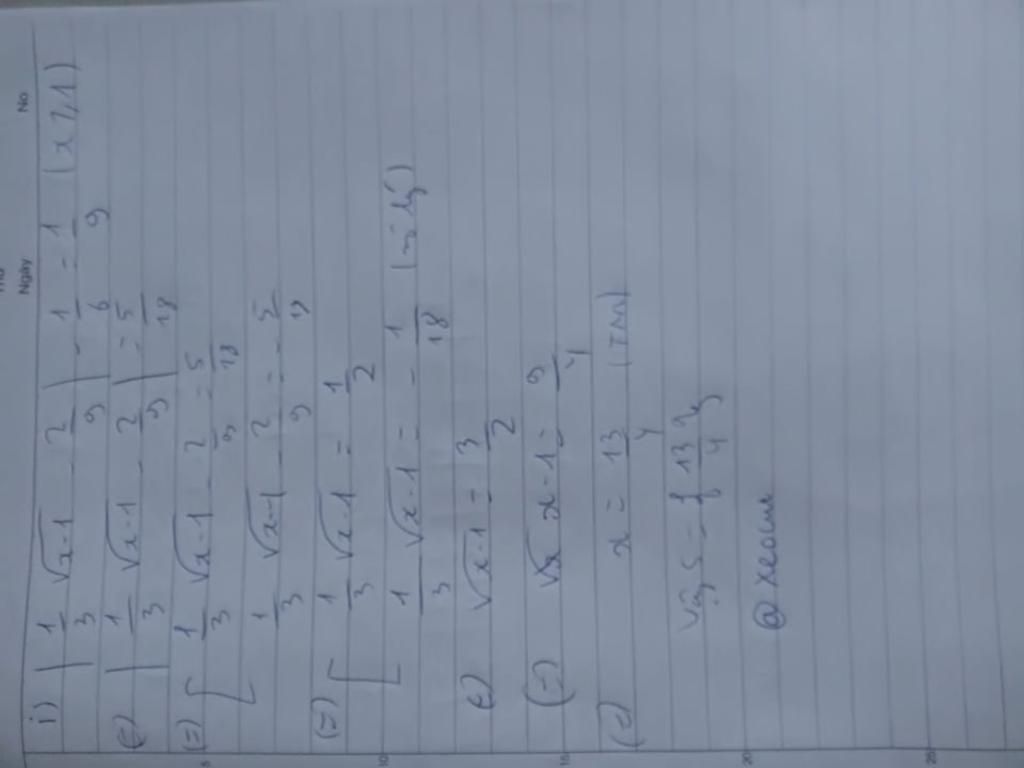 Ngày No
i) | 1/3 √x-1 - 2/9 | - 1/6 = 1/9 (x ≥ 1)
(=) | 1/3 √x-1 - 2/9 | = 5/18
(=) [ 1/3 √x-1 - 2/9 = 5/18
1/3 √x-1 - 2/9 = - 5/19
(=) [ 1/3 √x-1 = 1/2
1/3 √x-1 = - 1/18 (vô lý)
(=) √x-1 = 3/2
(=) x-1 = 9/4
(=) x = 13/4 (TM)
Vậy S = { 13/4 }
@ xeom